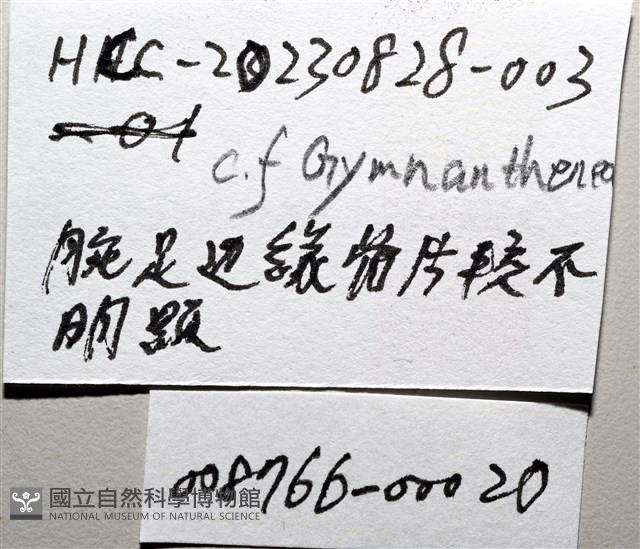 HLC-20230828-003
-01
c.f Gymnanthenea
腕足边緣骼片較不
明顯
008766-00020
國立自然科學博物館
NATIONAL MUSEUM OF NATURAL SCIENCE